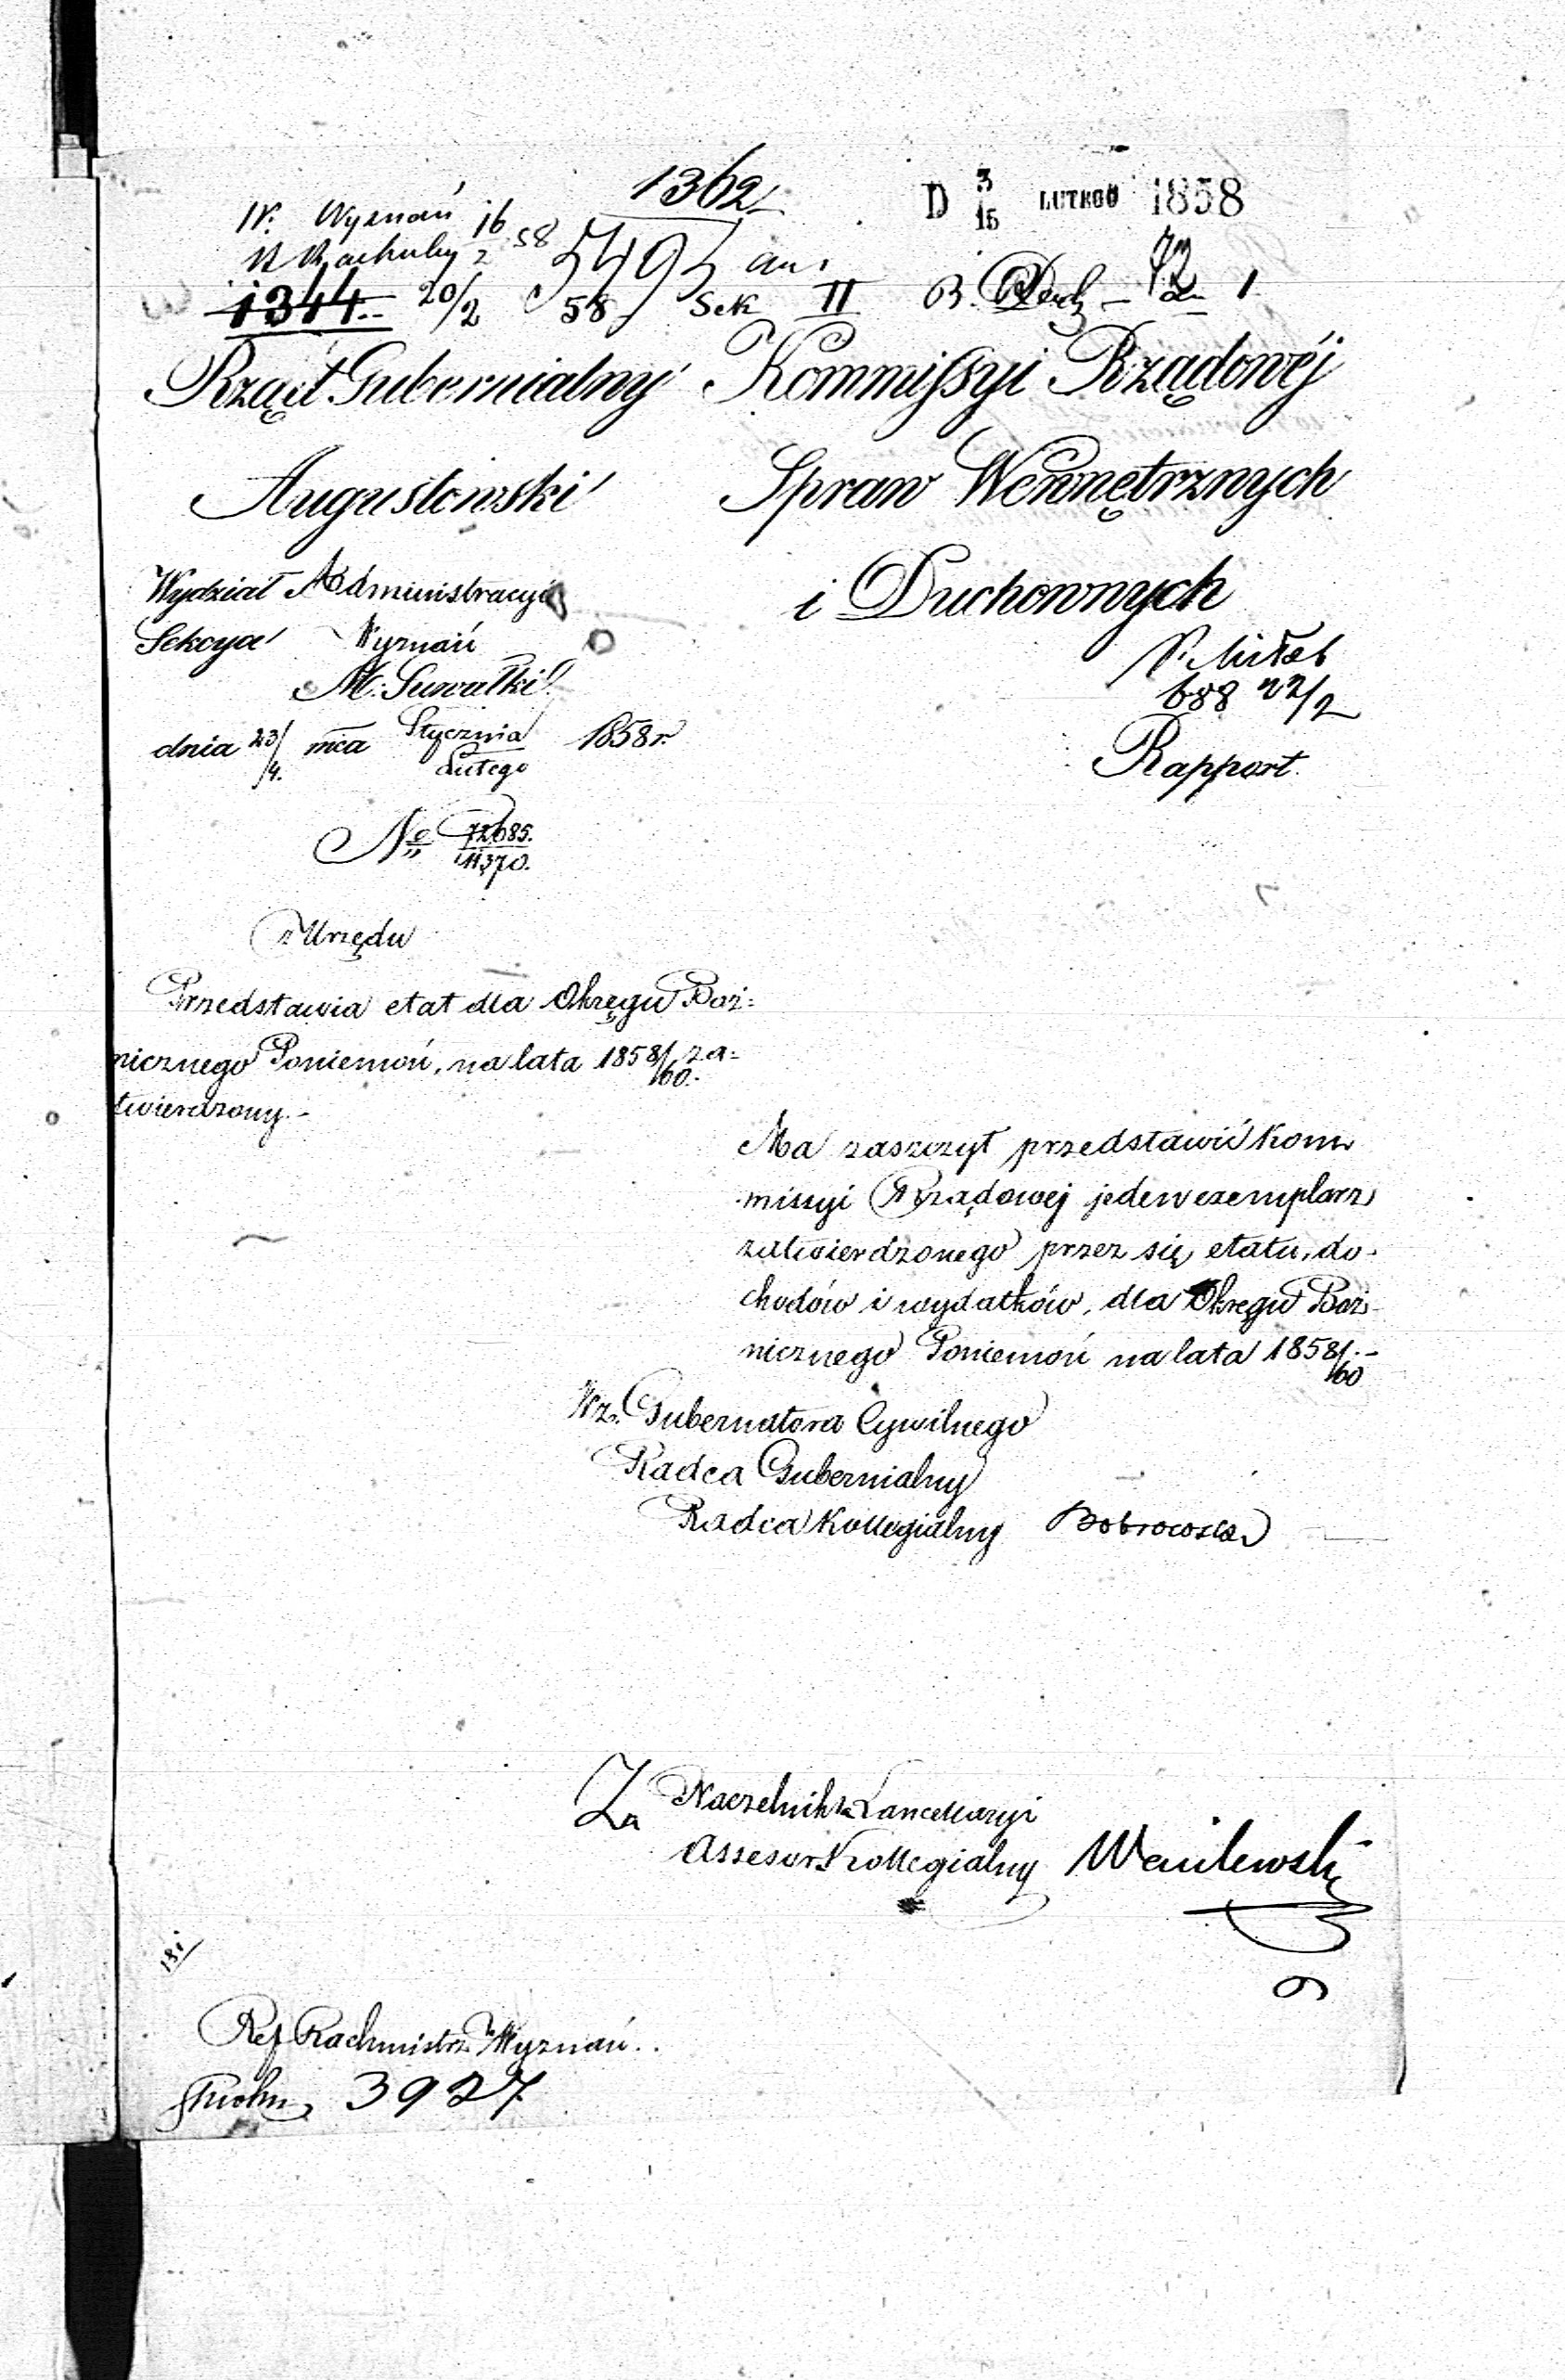 1362
D 3/15 LUTEGO 1858
W. Wyznań 16
W Rachuby 2 58
5495
1344 20/2 58 Sek II B. 1
Rząd Gubernialny
Augustowski
Kommissyi Rządowéj
Spraw Wewnętrznych
i Duchownych
Wydział Administracyi
Sekcya Wyznań
M. Suwałki
dnia 23/4. mca Stycznia/Lutego 1858 r.
688 22/2
Rapport.
No 72685./11370.
z Urzędu
Przedstawia etat dla Okręgu Boż=
nicznego Poniemoń, na lata 1858/60. za=
twierdzony.-
Ma zaszczyt przedstawić Kom
missyi Rządowej jeden exemplarz
zatwierdzonego przez się etatu, do-
chodów i wydatków, dla Okręgu Boż-
nicznego Poniemoń na lata 1858/60.-
Wz. Gubernatora Cywilnego
Radca Gubernialny
Radca Kollegialny
Za Naczelnika Kancellaryi
Assesor Kollegialny
Ref Rachmistrz Wyznań.
3927